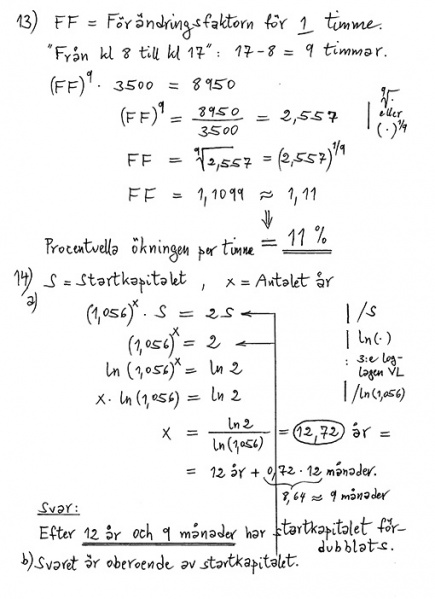 13) FF = Förändringsfaktorn för 1 timme.
"Från kl 8 till kl 17": 17-8 = 9 timmar.
(FF)⁹ · 3500 = 8950
(FF)⁹ = 8950/3500 = 2,557 | ⁹√‾ eller (·)^1/9
FF = ⁹√2,557 = (2,557)^1/9
FF = 1,1099 ≈ 1,11
⇓
Procentuella ökningen per timme = 11 %
14) S = Startkapitalet , x = Antalet år
a)
(1,056)^x · S = 2S | /S
(1,056)^x = 2 | ln(·)
ln (1,056)^x = ln 2 : 3:e log-lagen VL
x · ln (1,056) = ln 2 | /ln(1,056)
x = ln 2/ln(1,056) = 12,72 år =
= 12 år + 0,72 · 12 månader.
8,64 ≈ 9 månader
Svar:
Efter 12 år och 9 månader har startkapitalet för-
dubblats.
b) Svaret är oberoende av startkapitalet.